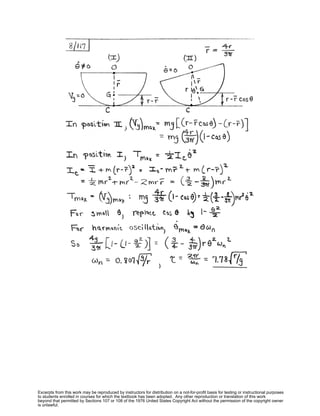 8/117
r̄ = 4r/3π
(I) (II)
θ̇≠0 O θ̇=0 O
r̄ r̄
r θ G
V_g=0 G r-r̄ r-r̄ cosθ
C C
In position II, (V_g)max = mg[(r-r̄ cosθ)-(r-r̄)]
= mg(4r/3π)(1-cosθ)
In position I, Tmax = ½ I_c θ̇²
I_c = Ī + m(r-r̄)² = I_o - mr̄² + m(r-r̄)²
= ½mr² + mr² - 2mrr̄ = (3/2 - 8/3π)mr²
Tmax = (V_g)max : mg 4r/3π (1-cosθ) = ½(3/2 - 8/3π)mr²θ̇²
For small θ, replace cosθ by 1-θ²/2
For harmonic oscillation, θ̇max = θωn
So 4g/3π [1-(1-θ²/2)] = (3/4 - 4/3π)rθ²ωn²
ωn = 0.807√g/r , τ = 2π/ωn = 7.78√r/g
Excerpts from this work may be reproduced by instructors for distribution on a not-for-profit basis for testing or instructional purposes
to students enrolled in courses for which the textbook has been adopted. Any other reproduction or translation of this work
beyond that permitted by Sections 107 or 108 of the 1976 United States Copyright Act without the permission of the copyright owner
is unlawful.